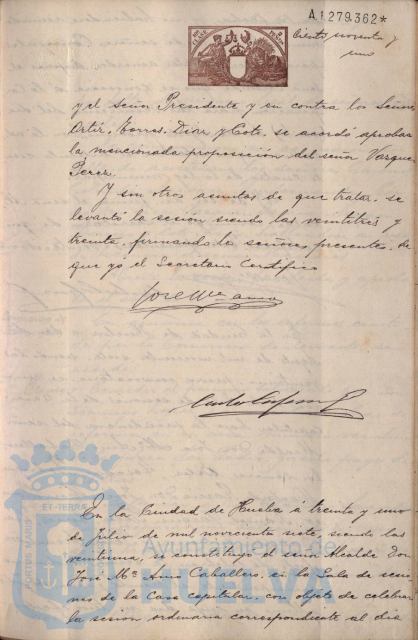 A.1.279.362*
Ciento noventa y
uno
y el Señor Presidente y en contra los Señores
Ortiz, Torres, Diaz y Cote, se acordó aprobar
la mencionada proposición del señor Vazquez
Perez.
Y sin otros asuntos de que tratar, se
levantó la sesión siendo las veintitres y
treinta, firmando la señores presentes, de
que yó el Secretario Certifico
José Mª Amo
En la Ciudad de Huelva á treinta y uno
de Julio de mil novecientos siete, siendo las
veintiuna, se constituyó el señor Alcalde Don
José Mª Amo Caballero, en la Sala de sesio-
nes de la Casa capitular, con objeto de celebrar
la sesión ordinaria correspondiente al dia
PORTUS MARIS ET TERRAE
Ayuntamiento de
HUELVA